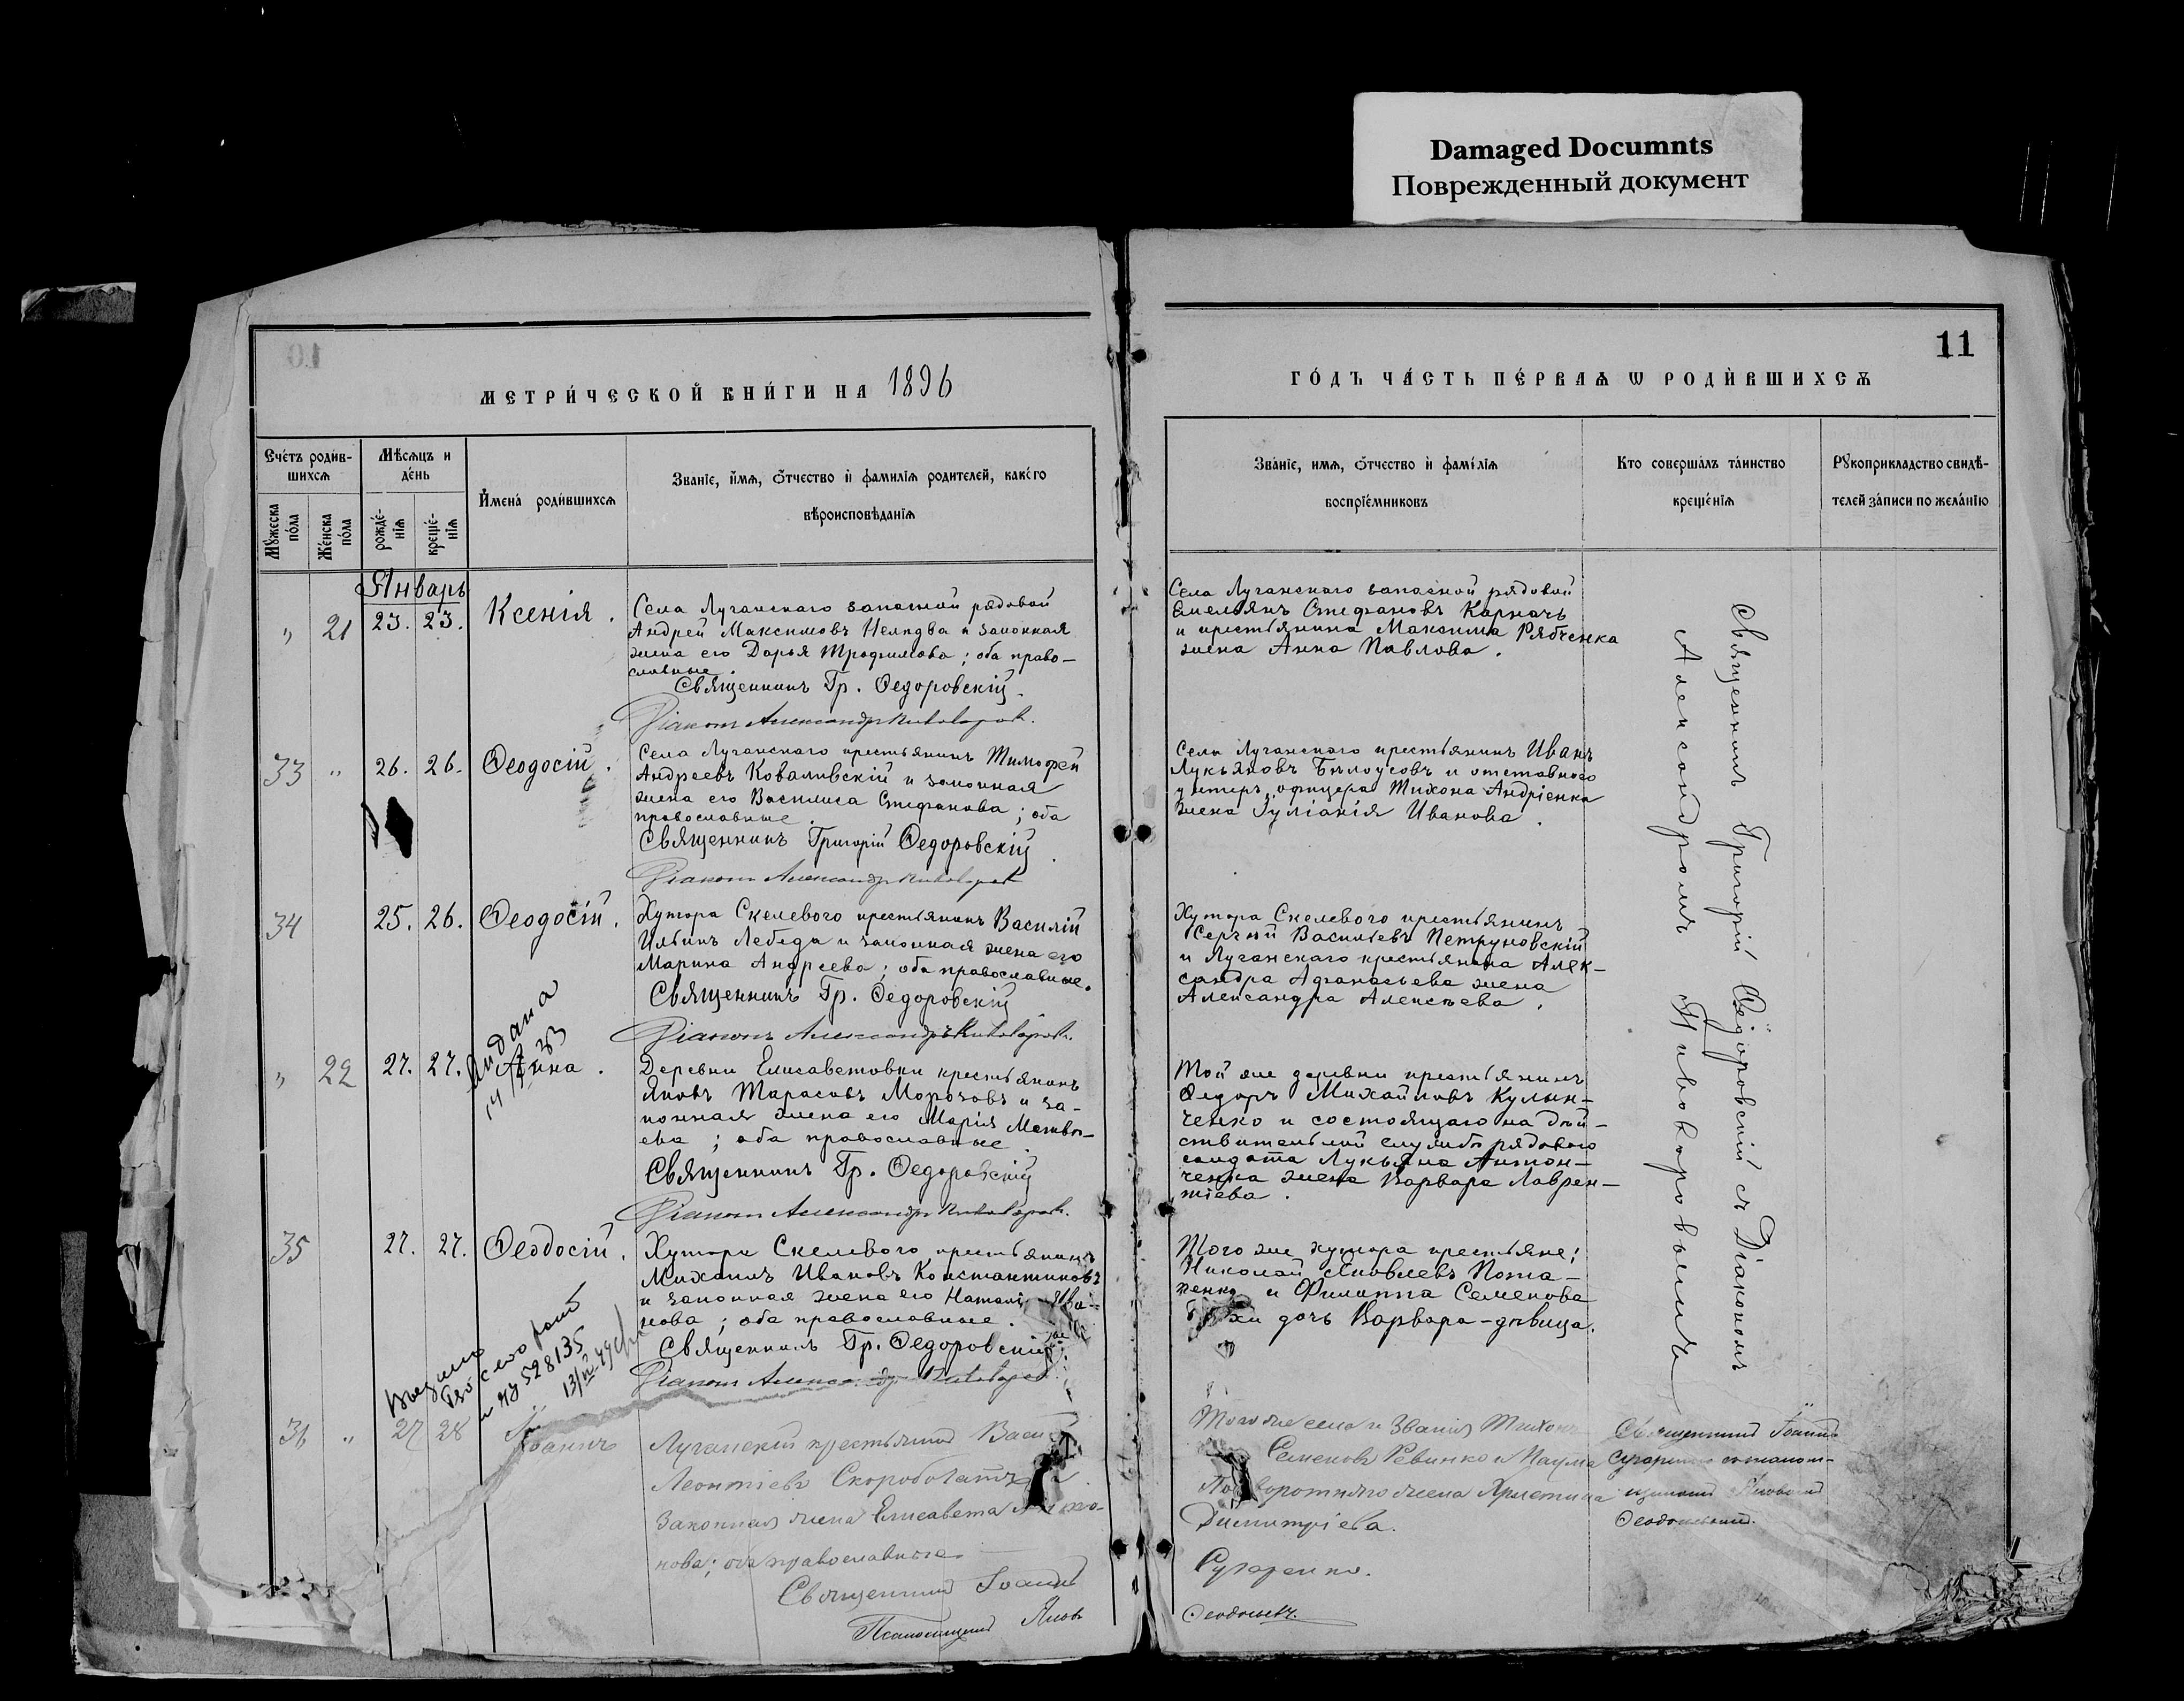 Damaged Documnts
Поврежденный документ
МЕТРИ́ЧЕСКОЙ КНИ́ГИ НА 1896
Сче́тъ роди́в-
шихсѧ
Мꙋ́жеска по́ла
Же́нска по́ла
Мѣ́сѧцъ и де́нь
рожде́-
нїѧ
креще́-
нїѧ
И҆мена̀ роди́вшихсѧ
Зва́нїе, и҆́мѧ, ѻ҆́тчество и҆ фами́лїѧ роди́телей, како́го
вѣроисповѣ́данїѧ
Январь
" 21 23. 23. Ксенія.
Села Луганскаго запасной рядовой
Андрей Максимовъ Нелидва и законная
жена его Дарья Трофимова; оба право-
славные.
Священникъ Гр. Ѳедоровскій.
Діаконъ Александръ Пивоваров.
33 " 26. 26. Ѳеодосій.
Села Луганскаго крестьянинъ Тимофей
Андреевъ Коваливскій и законная
жена его Василиса Стефанова; оба
православные.
Священникъ Григорій Ѳедоровскій.
Діаконъ Александръ Пивоваров
34 25. 26. Ѳеодосій.
Хутора Скелевого крестьянинъ Василій
Ильинъ Лебедь и законная жена его
Марина Андреева; оба православные.
Священникъ Гр. Ѳедоровскій
Діаконъ Александръ Пивоваров.
" 22 27. 27. Анна.
Выдана
Деревни Елисаветовки крестьянинъ
Яковъ Тарасовъ Морозовъ и за-
конная жена его Марія Матвѣ-
ева; оба православные
Священникъ Гр. Ѳедоровскій
Діаконъ Александръ Пивоваров.
35 27. 27. Ѳеодосій.
Хутора Скелевого крестьянинъ
Михаилъ Ивановъ Константиновъ
и законная жена его Натал Ива-
нова; оба православные.
Священникъ Гр. Ѳедоровскій
Діаконъ Александръ Пивоваров.
528135
36 " 27 28 Іоаннъ
Луганскій крестьянинъ Васи
Леонтіевъ Скоробогатъ
законная жена Елисавета
нова; оба православные.
Священникъ Іоаннъ
Псаломщикъ Яковъ
11
ГО́ДЪ ЧА́СТЬ ПЕ́РВАѦ Ѡ РОДИ́ВШИХСѦ
Зва́нїе, и҆мѧ, ѻ҆́тчество и҆ фами́лїѧ
воспрїе́мниковъ
Кто соверша́лъ та́инство
креще́нїѧ
Рꙋкоприкладство свидѣ́-
телей за́писи по жела́нїю
Села Луганскаго запасной рядовой
Емельянъ Стефановъ Карначъ
и крестьянина Максима Рябченка
жена Анна Павлова.
Села Луганскаго крестьянинъ Иванъ
Лукьяновъ Бѣлоусовъ и отставного
унтеръ офицера Тихона Андріенка
жена Іуліанія Иванова.
Хутора Скелевого крестьянинъ
Сергѣй Васильевъ Петруновскій
и Луганскаго крестьянина Алек-
сандра Афанасьева жена
Александра Алексѣева.
Той же деревни крестьянинъ
Ѳедоръ Михайловъ Кулын-
ченко и состоящаго на дѣй-
ствительной службѣ рядового
солдата Лукьяна Антон-
ченка жена Варвара Лаврен-
тіева.
Того же хутора крестьяне:
Николай Яковлевъ Пота-
пенко и Филиппа Семенова
дочь Варвара-дѣвица.
Того же села и званія Тихонъ
Семеновъ Ревинко и Наума
жена Христина
Димитріева.
Сухаренко.
Ѳеодосьевъ.
Священникъ Григорій Ѳедоровскій съ Діакономъ
Александромъ Пивоваровымъ
Священникъ Іоаннъ
Сухаренко съ псалом-
щикомъ Яковомъ